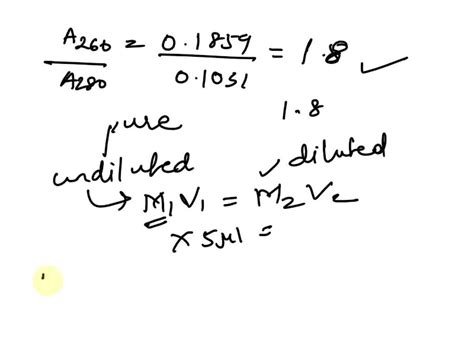 A260/A280 = 0.1859/0.1031 = 1.8 ✓
1.8
pure
undiluted ✓ diluted
→ M1V1 = M2V2
x 5μl =